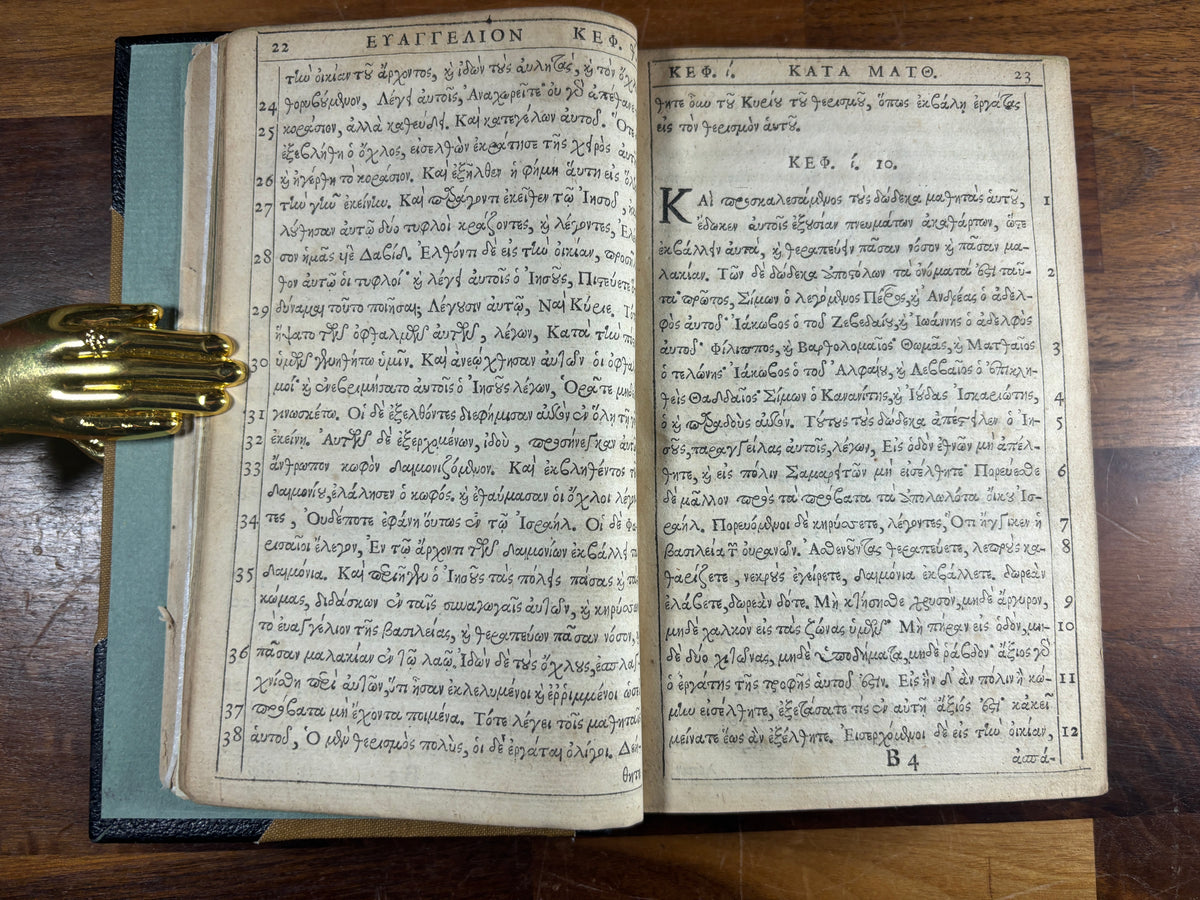 22 ΕΥΑΓΓΕΛΙΟΝ ΚΕΦ.
τὴν οἰκίαν τοῦ ἄρχοντος, καὶ ἰδὼν τοὺς αὐλητὰς, καὶ τὸν ὄχλ
24 θορυβούμενον, Λέγει αὐτοῖς, Ἀναχωρεῖτε· οὐ γὰρ ἀπέθανε
25 κοράσιον, ἀλλὰ καθεύδει. Καὶ κατεγέλων αὐτοῦ. Ὅτε
ἐξεβλήθη ὁ ὄχλος, εἰσελθὼν ἐκράτησε τῆς χειρὸς αὐτ
26 καὶ ἠγέρθη τὸ κοράσιον. Καὶ ἐξῆλθεν ἡ φήμη αὕτη εἰς ὅλ
27 τὴν γῆν ἐκείνην. Καὶ παράγοντι ἐκεῖθεν τῷ Ἰησοῦ,
λούθησαν αὐτῷ δύο τυφλοὶ κράζοντες, καὶ λέγοντες, Ἐλέ
28 σον ἡμᾶς υἱὲ Δαβίδ. Ἐλθόντι δὲ εἰς τὴν οἰκίαν, προσῆλ
θον αὐτῷ οἱ τυφλοί· καὶ λέγει αὐτοῖς ὁ Ἰησοῦς, Πιστεύετε
29 δύναμαι τοῦτο ποιῆσαι; Λέγουσιν αὐτῷ, Ναὶ Κύριε. Τό
ἥψατο τῶν ὀφθαλμῶν αὐτῶν, λέγων, Κατὰ τὴν πί
30 ὑμῶν γενηθήτω ὑμῖν. Καὶ ἀνεῴχθησαν αὐτῶν οἱ ὀφθαλ
μοί· καὶ ἐνεβριμήσατο αὐτοῖς ὁ Ἰησοῦς λέγων, Ὁρᾶτε μηδε
31 γινωσκέτω. Οἱ δὲ ἐξελθόντες διεφήμισαν αὐτὸν ἐν ὅλῃ τῇ γῇ
32 ἐκείνῃ. Αὐτῶν δὲ ἐξερχομένων, ἰδοὺ, προσήνεγκαν αὐτ
33 ἄνθρωπον κωφὸν δαιμονιζόμενον. Καὶ ἐκβληθέντος τ
δαιμονίου, ἐλάλησεν ὁ κωφός. καὶ ἐθαύμασαν οἱ ὄχλοι λέγον
34 τες, Οὐδέποτε ἐφάνη οὕτως ἐν τῷ Ἰσραήλ. Οἱ δὲ Φα
ρισαῖοι ἔλεγον, Ἐν τῷ ἄρχοντι τῶν δαιμονίων ἐκβάλλει τ
35 δαιμόνια. Καὶ περιῆγεν ὁ Ἰησοῦς τὰς πόλεις πάσας καὶ τὰ
κώμας, διδάσκων ἐν ταῖς συναγωγαῖς αὐτῶν, καὶ κηρύσσων
τὸ εὐαγγέλιον τῆς βασιλείας, καὶ θεραπεύων πᾶσαν νόσον,
36 πᾶσαν μαλακίαν ἐν τῷ λαῷ. Ἰδὼν δὲ τοὺς ὄχλους, ἐσπλαγ
χνίσθη περὶ αὐτῶν, ὅτι ἦσαν ἐκλελυμένοι καὶ ἐρριμμένοι ὡσεὶ
37 πρόβατα μὴ ἔχοντα ποιμένα. Τότε λέγει τοῖς μαθηταῖς
38 αὑτοῦ, Ὁ μὲν θερισμὸς πολὺς, οἱ δὲ ἐργάται ὀλίγοι. Δεή-
θητε
ΚΕΦ. ί. ΚΑΤΑ ΜΑΤΘ. 23
θητε οὖν τοῦ Κυρίου τοῦ θερισμοῦ, ὅπως ἐκβάλῃ ἐργάτας
εἰς τὸν θερισμὸν αὑτοῦ.
ΚΕΦ. ί. 10.
ΚΑῚ προσκαλεσάμενος τοὺς δώδεκα μαθητὰς αὑτοῦ, 1
ἔδωκεν αὐτοῖς ἐξουσίαν πνευμάτων ἀκαθάρτων, ὥστε
ἐκβάλλειν αὐτὰ, καὶ θεραπεύειν πᾶσαν νόσον καὶ πᾶσαν μα-
λακίαν. Τῶν δὲ δώδεκα ἀποστόλων τὰ ὀνόματά ἐστι ταῦ- 2
τα· πρῶτος, Σίμων ὁ λεγόμενος Πέτρος, καὶ Ἀνδρέας ὁ ἀδελ-
φὸς αὐτοῦ· Ἰάκωβος ὁ τοῦ Ζεβεδαίου, καὶ Ἰωάννης ὁ ἀδελφὸς
αὐτοῦ· Φίλιππος, καὶ Βαρθολομαῖος· Θωμᾶς, καὶ Ματθαῖος 3
ὁ τελώνης· Ἰάκωβος ὁ τοῦ Ἀλφαίου, καὶ Λεββαῖος ὁ ἐπικλη-
θεὶς Θαδδαῖος· Σίμων ὁ Κανανίτης, καὶ Ἰούδας Ἰσκαριώτης, 4
ὁ καὶ παραδοὺς αὐτόν. Τούτους τοὺς δώδεκα ἀπέστειλεν ὁ Ἰη- 5
σοῦς, παραγγείλας αὐτοῖς, λέγων, Εἰς ὁδὸν ἐθνῶν μὴ ἀπέλ-
θητε, καὶ εἰς πόλιν Σαμαρειτῶν μὴ εἰσέλθητε· Πορεύεσθε 6
δὲ μᾶλλον πρὸς τὰ πρόβατα τὰ ἀπολωλότα οἴκου Ἰσ-
ραήλ. Πορευόμενοι δὲ κηρύσσετε, λέγοντες, Ὅτι ἤγγικεν ἡ 7
βασιλεία τῶν οὐρανῶν. Ἀσθενοῦντας θεραπεύετε, λεπροὺς κα- 8
θαρίζετε, νεκροὺς ἐγείρετε, δαιμόνια ἐκβάλλετε. δωρεὰν
ἐλάβετε, δωρεὰν δότε. Μὴ κτήσησθε χρυσὸν, μηδὲ ἄργυρον, 9
μηδὲ χαλκὸν εἰς τὰς ζώνας ὑμῶν· Μὴ πήραν εἰς ὁδὸν, μη- 10
δὲ δύο χιτῶνας, μηδὲ ὑποδήματα, μηδὲ ῥάβδον· ἄξιος γὰρ
ὁ ἐργάτης τῆς τροφῆς αὑτοῦ ἐστιν. Εἰς ἣν δ᾽ ἂν πόλιν ἢ κώ- 11
μην εἰσέλθητε, ἐξετάσατε τίς ἐν αὐτῇ ἄξιός ἐστι· κἀκεῖ
μείνατε ἕως ἂν ἐξέλθητε. Εἰσερχόμενοι δὲ εἰς τὴν οἰκίαν, 12
B 4 ἀσπά-